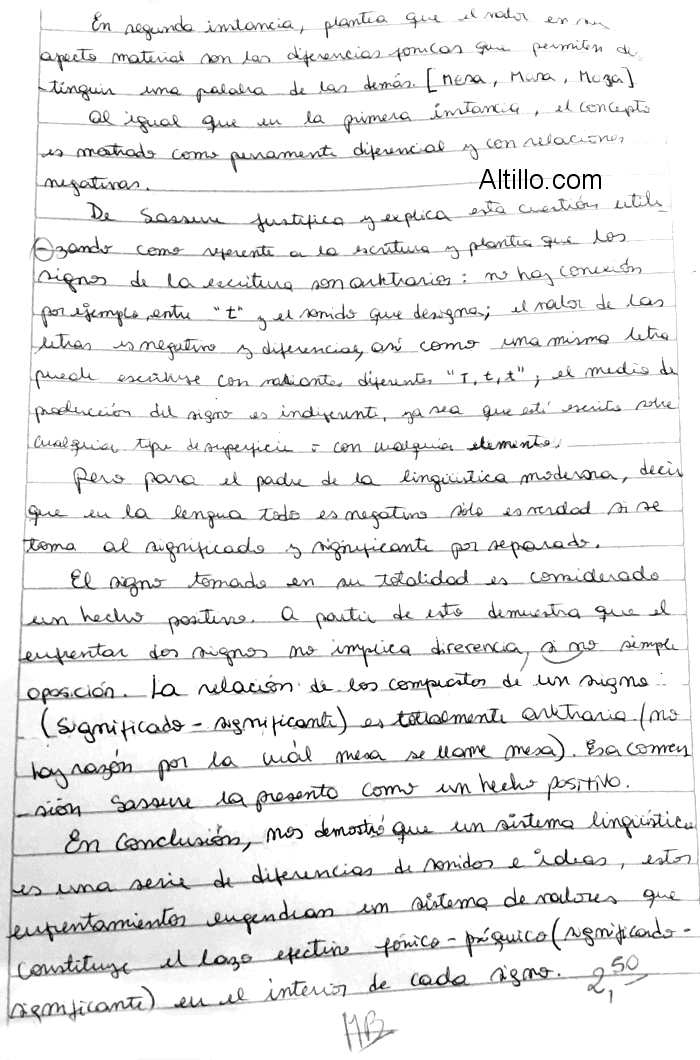 En segunda instancia, plantea que el valor en su
aspecto material son las diferencias fónicas que permiten dis
-tinguir una palabra de las demás. [Mesa, Musa, Moza]
Al igual que en la primera instancia, el concepto
es mostrado como puramente diferencial y con relaciones
negativas.
Altillo.com
De Sassure justifica y explica esta cuestión utili
-zando como referente a la escritura y plantea que los
signos de la escritura son arbitrarios: no hay conexión
por ejemplo, entre "t" y el sonido que designa; el valor de las
letras es negativo y diferencial, así como una misma letra
puede escribirse con variantes diferentes "T, t, t"; el medio de
producción del signo es indiferente, ya sea que esté escrito sobre
cualquier tipo de superficie o con cualquier elemento.
Pero para el padre de la lingüística moderna, decir
que en la lengua todo es negativo sólo es verdad si se
toma al significado y significante por separado.
El signo tomado en su totalidad es considerado
un hecho positivo. A partir de esto demuestra que el
enfrentar dos signos no implica diferencia, si no simple
oposición. La relación de los compuestos de un signo
(significado - significante) es totalmente arbitraria (no
hay razón por la cuál mesa se llame mesa). Esa comen
-sión Sassure la presento como un hecho positivo.
En conclusión, nos demostró que un sistema lingüístico
es una serie de diferencias de sonidos e ideas, estos
enfrentamientos engendran un sistema de valores que
constituye el lazo efectivo fónico - psíquico (significado -
significante) en el interior de cada signo. 2,50
MB